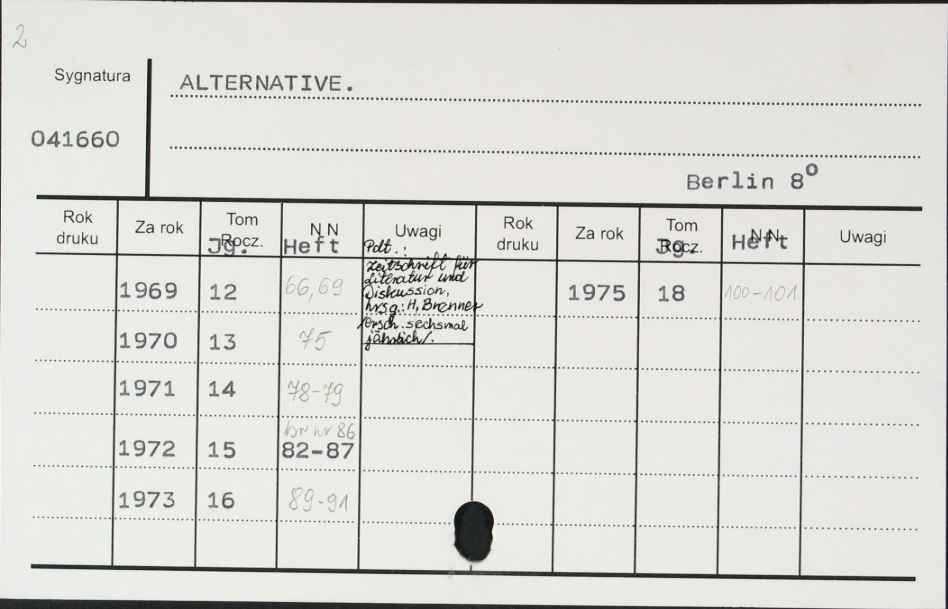 2
Sygnatura
ALTERNATIVE.
041660
Berlin 8°
Rok druku Za rok Tom Rocz. N N Uwagi Rok druku Za rok Tom Rocz. N N Uwagi
Jg. Heft Jg. Heft
Pdt.:
Zeitschrift für
Literatur und
Diskussion,
hrsg. H. Brenner
/Ersch. sechsmal
jährlich/.
1969 12 66, 69 1975 18 100-101
1970 13 75
1971 14 78-79
br nr 86
1972 15 82-87
1973 16 89-91